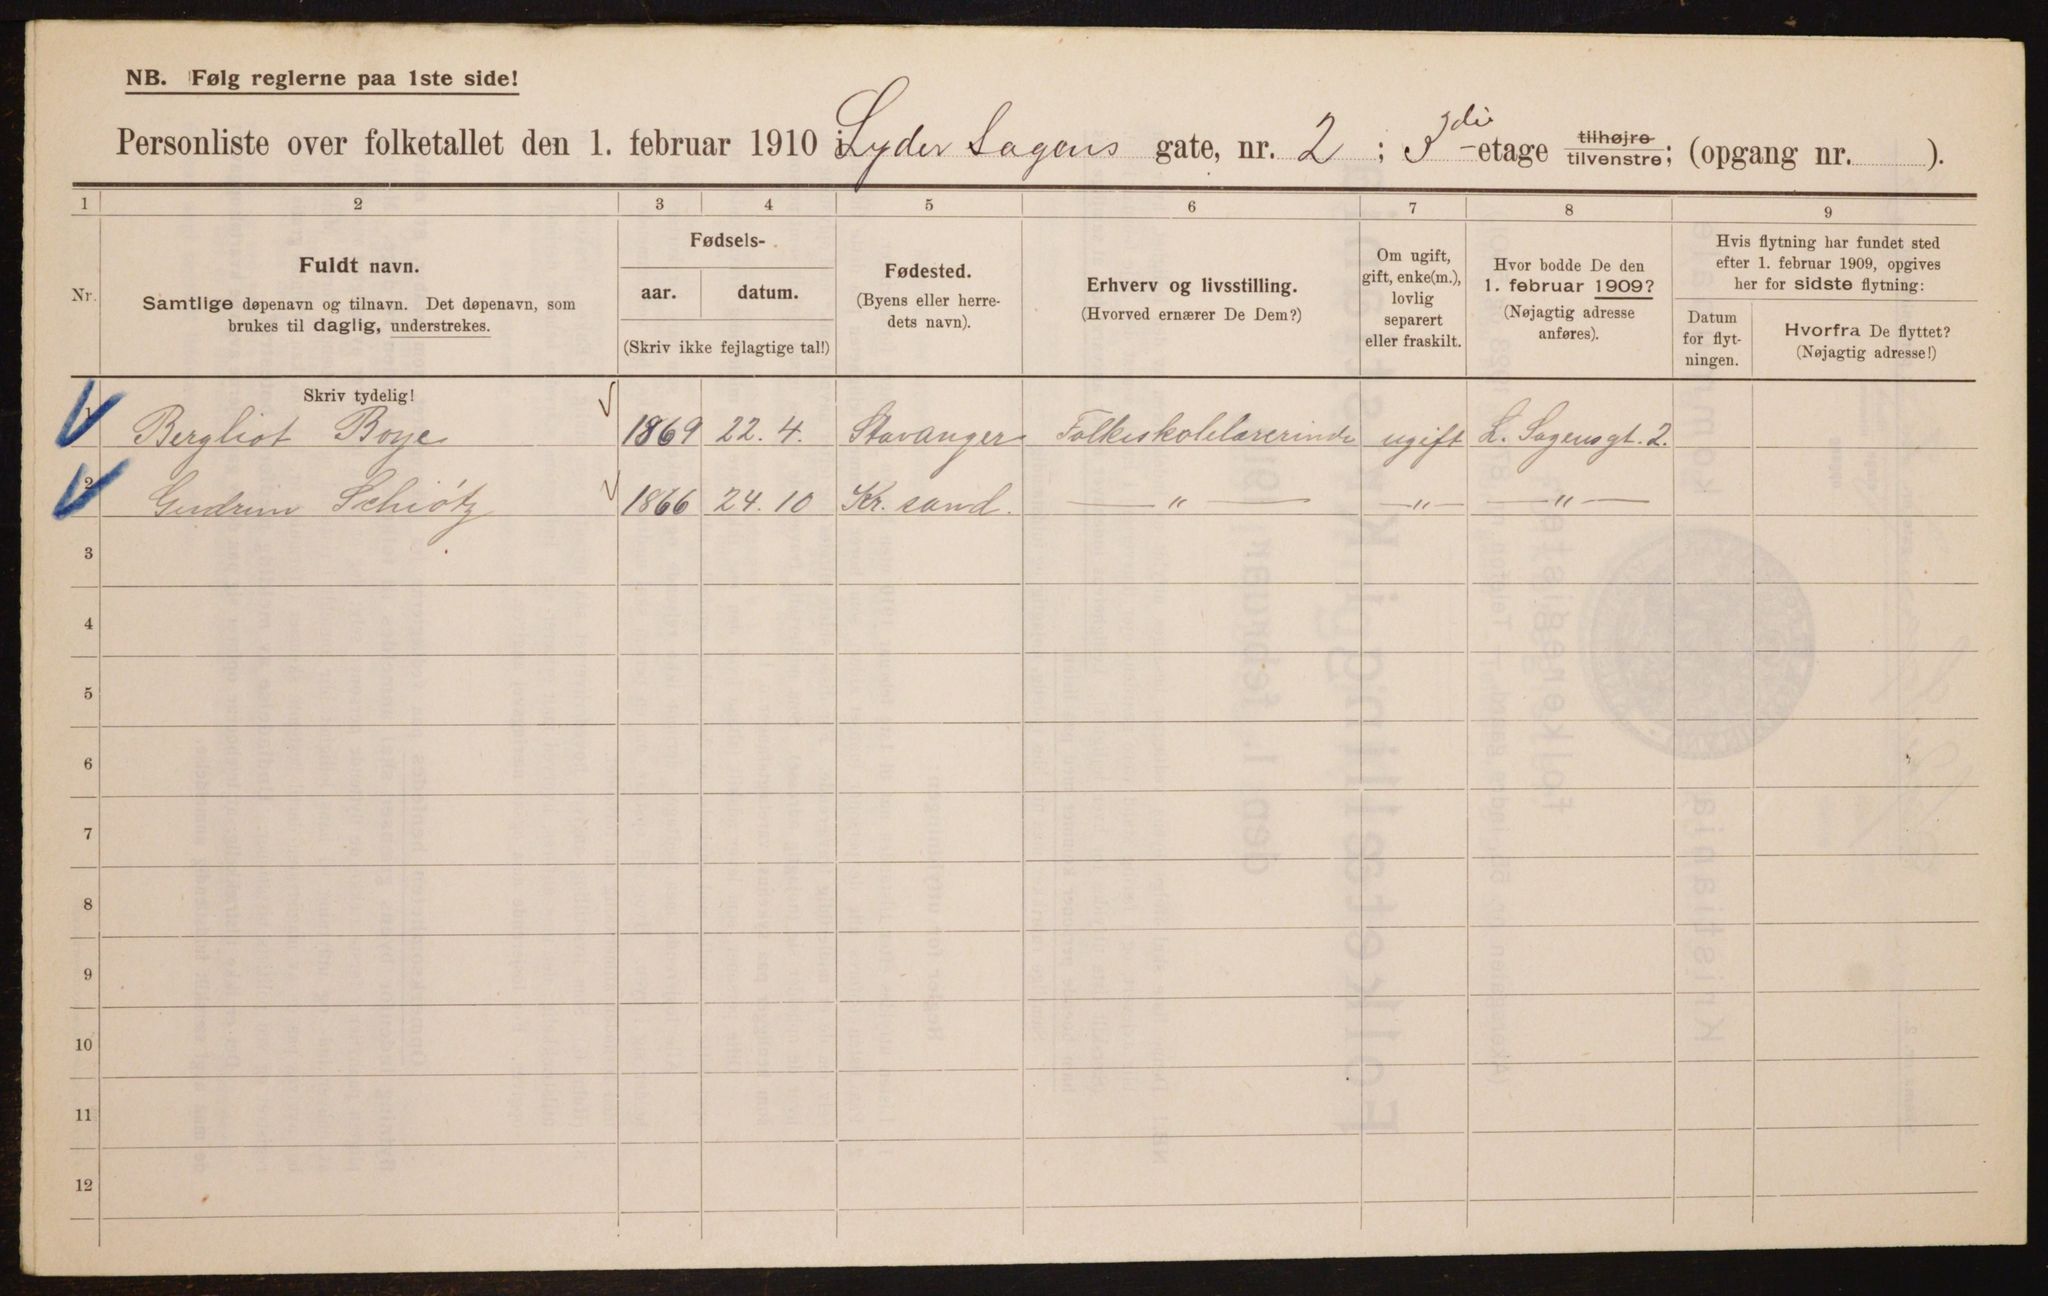 NB. Følg reglerne paa 1ste side!
Personliste over folketallet den 1. februar 1910 i Lyder Sagens gate, nr. 2 ; 3die -etage tilhøjre tilvenstre; (opgang nr. ).
1 2 3 4 5 6 7 8 9
Nr.
Fuldt navn.
Samtlige døpenavn og tilnavn. Det døpenavn, som
brukes til daglig, understrekes.
Fødsels-
aar. datum.
(Skriv ikke fejlagtige tal!)
Fødested.
(Byens eller herre-
dets navn).
Erhverv og livsstilling.
(Hvorved ernærer De Dem?)
Om ugift,
gift, enke(m.),
lovlig
separert
eller fraskilt.
Hvor bodde De den
1. februar 1909?
(Nøjagtig adresse
anføres).
Hvis flytning har fundet sted
efter 1. februar 1909, opgives
her for sidste flytning:
Datum
for flyt-
ningen.
Hvorfra De flyttet?
(Nøjagtig adresse!)
Skriv tydelig!
1 Bergliot Boye 1869 22.4. Stavanger Folkeskolelærerinde ugift L. Sagensgt. 2.
2 Gudrun Schiötz 1866 24.10 Kr. sand. — „ — — „ — — „ —
3
4
5
6
7
8
9
10
11
12